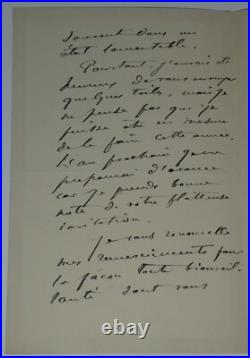 dans un
état lamentable.
Pourtant, je serais
heureux de vous envoyer
quelques toiles, mais je
ne pense pas que je
puisse être en mesure
de le faire cette année.
L'an prochain je me
préparerai d'avance
car je prends bonne
note de votre flatteuse
invitation.
je vous renouvelle
mes remerciements pour
la façon toute
dont vous
www.collectorsworld.us